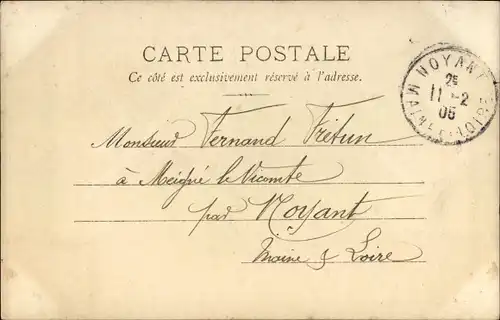 CARTE POSTALE
Ce côté est exclusivement réservé à l'adresse.
NOYANT
MAINE-ET-LOIRE
25
11 -2
05
Monsieur Fernand Frétun
à Meigné le Vicomte
par Noyant
Maine & Loire